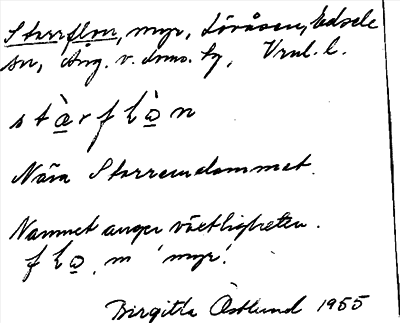 Starrflon, myr, Lövåsen, Edsele
sn, Ång. v. dms. hg, Vnl. l.
stàrflòn
Nära Starrendammet.
Namnet anger växtligheten.
flo, m 'myr'.
Birgitta Östlund 1955